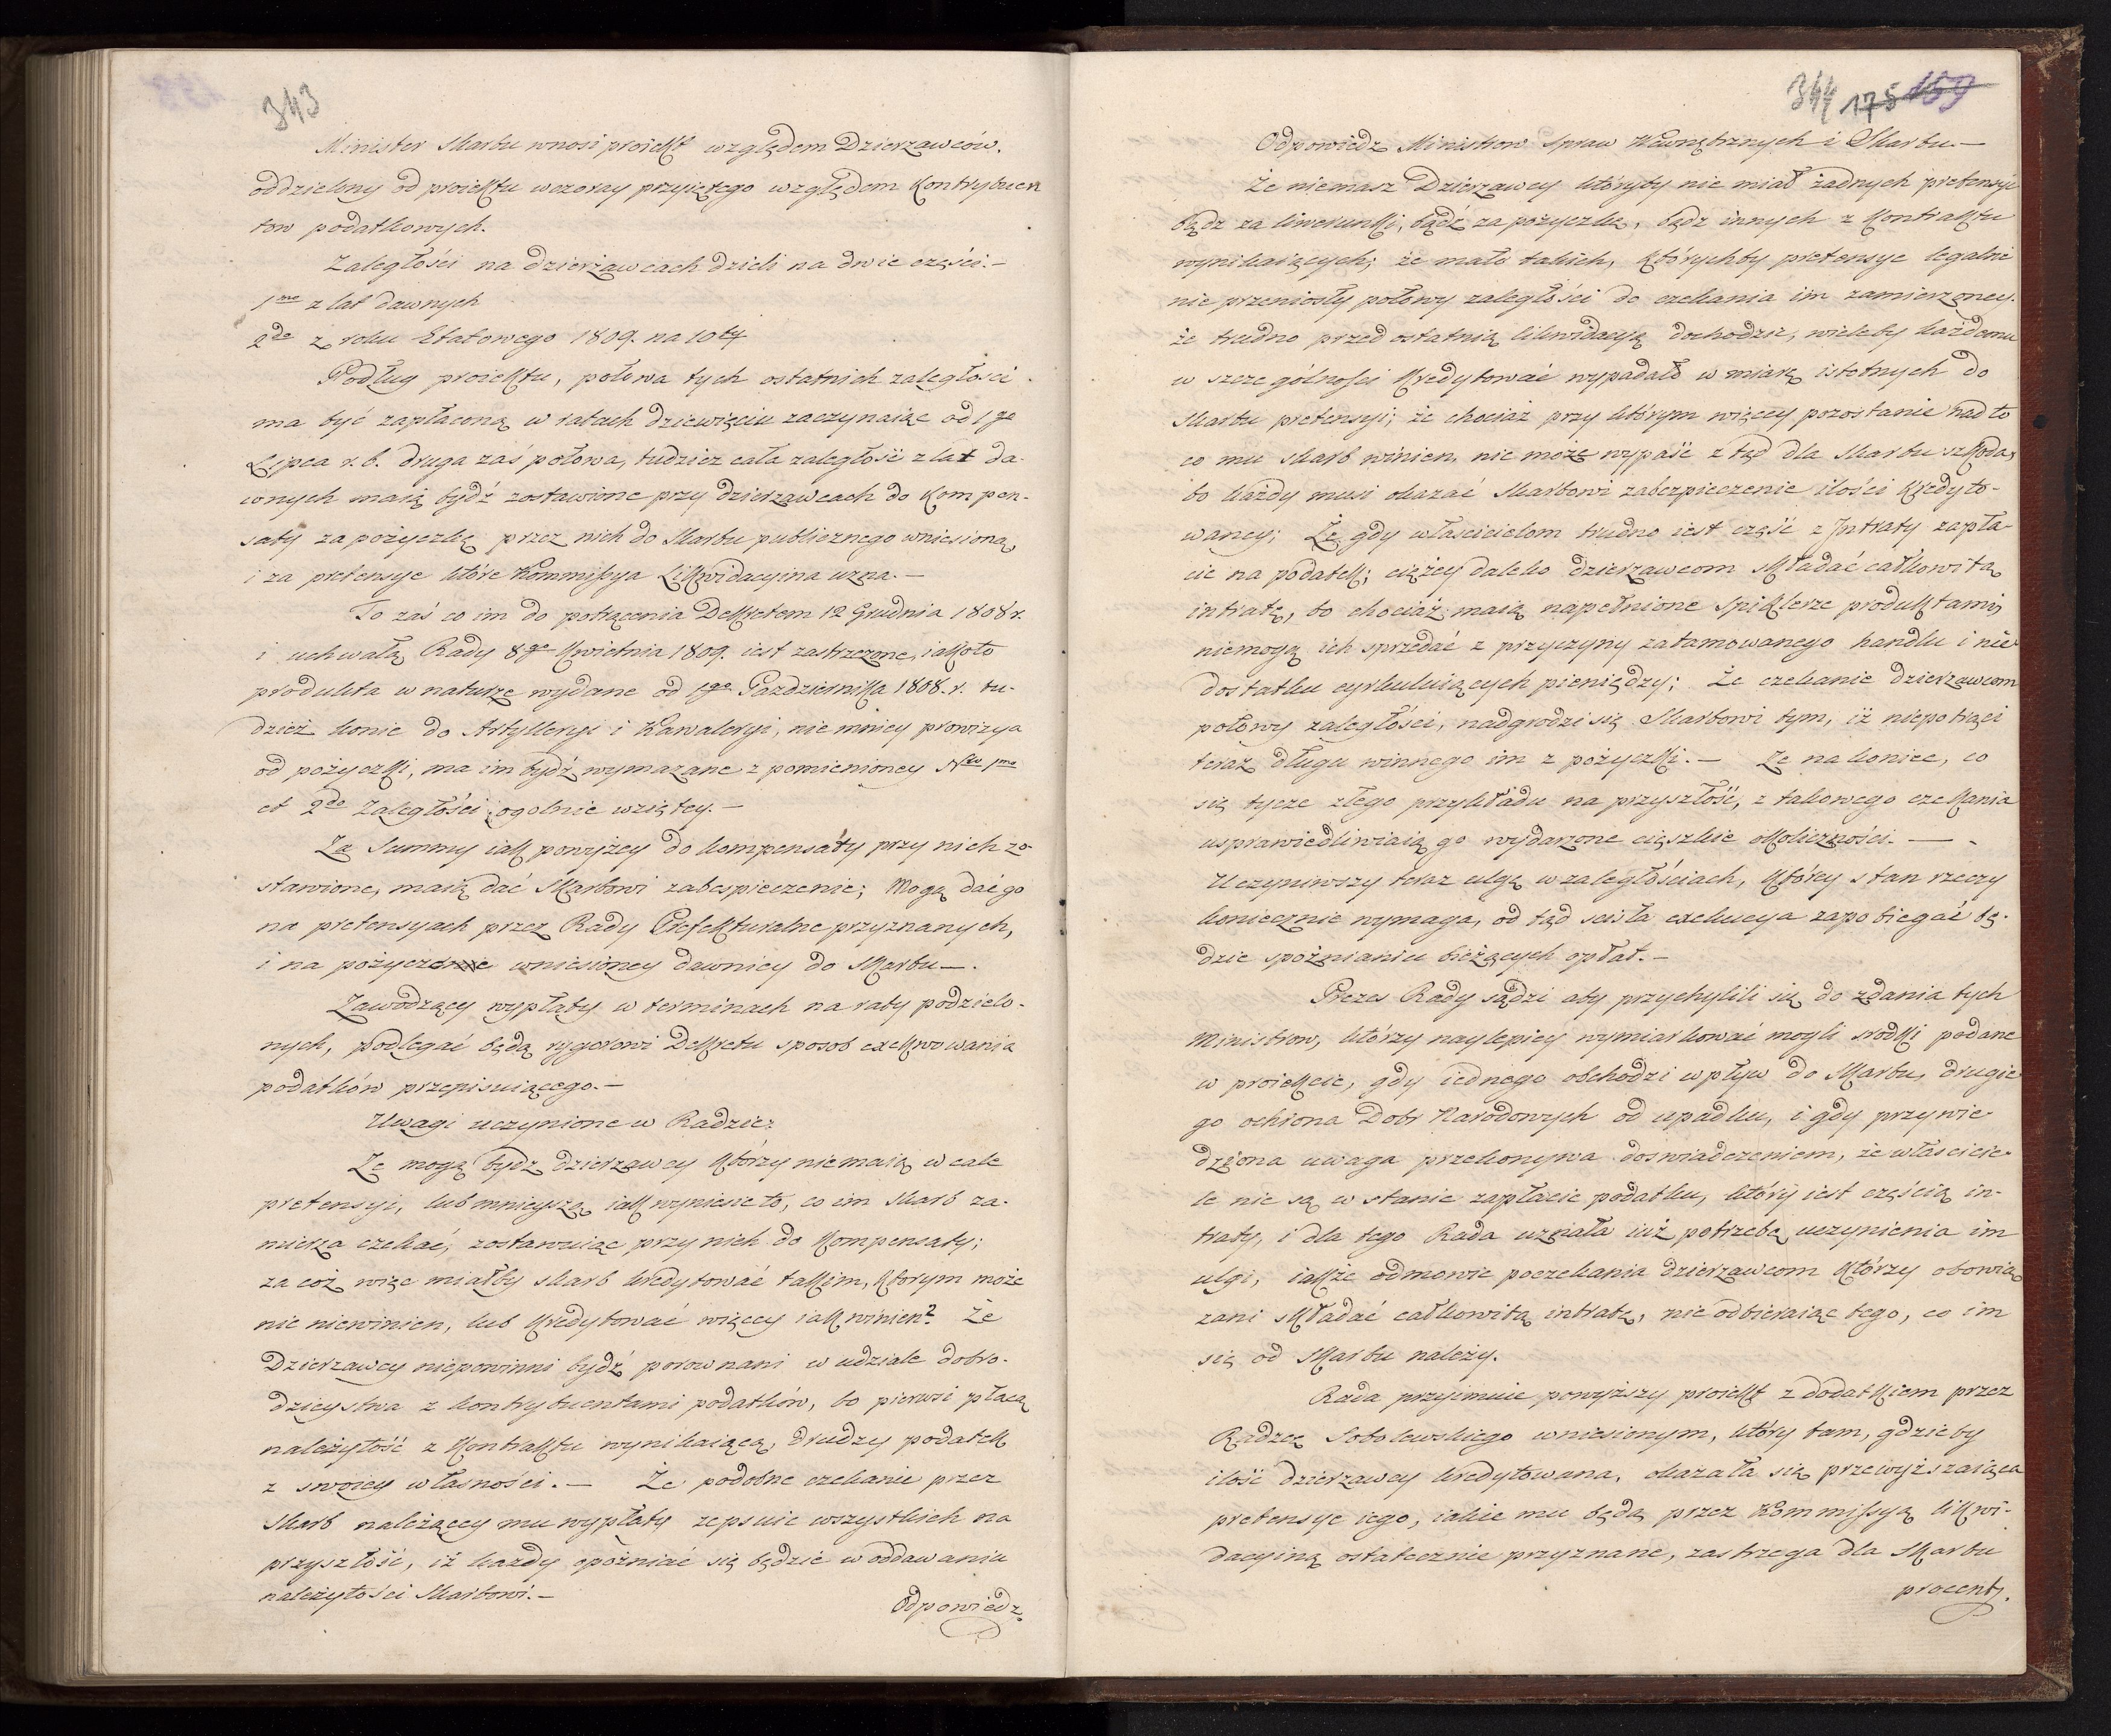 343
Minister Skarbu wnosi proiekt względem Dzierzawców.
oddzielony od proiektu wczoray przyiętego względem Kontrybuen
tow podatkowych.
Zaległości na dzierżawcach dzieli na dwie części.—
1mo z lat dawnych
2do z roku Etatowego 1809. na 10ty
Podług proiektu, połowa tych ostatnich zaległosci
ma być zapłaconą w ratach dziewięciu zaczynaiąc od 1go
Lipca r. b. druga zaś połowa, tudzież cała zaległość z lat da-
wnych maią bydź zostawione przy dzierzawcach do Kompen-
saty za pożyczkę przez nich do Skarbu publicznego wniesioną,
i za pretensye które Kommissya Likwidacyina uzna.—
To zaś co im do potrącenia Dekretem 12 Grudnia 1808 r.
i uchwałą Rady 8go Kwietnia 1809. iest zastrzeżone, iakoto
produkta w naturze wydane od 1go Pazdziernika 1808. r. tu-
dzież konie do Artylleryi i Kawaleryi, nie mniey prowizya
od pożyczki, ma im bydź wymazane z pomienioney Nro 1mo
et 2do Zaległości ogolnie wziętey.—
Za Summy iak powyżey do kompensaty przy nich zo-
stawione, maią dać Skarbowi zabespieczenie; Mogą dać go
na pretensyach przez Rady Prefekturalne przyznanych,
i na pożyczonne wniesioney dawniey do Skarbu—.
Zawodzący wypłaty w terminach na raty podzielo-
nych, podlegać będą rygorowi Dekretu sposob exekwowania
podatków przepisuiącego.—
Uwagi uczynione w Radzie:
Że mogą bydz dzierzawcy którzy niemaią wcale
pretensyi, lub mnieyszą iak wyniesie to, co im Skarb za-
mierza czekać, zostawuiąc przy nich do Kompensaty;
za coż więc miałby skarb kredytować takim, ktorym może
nic niewinien, lub kredytować więcey iak winien? Że
Dzierzawcy niepowinni bydź porownani w udziale dobro-
dzieystwa z kontrybuentami podatków, bo pierwsi płacą
należytość z Kontraktu wynikaiącą, drudzy podatek
z swoiey własności.— Że podobne czekanie przez
Skarb należącey mu wypłaty zepsuie wszystkich na
przyszłość, iż kazdy opóżniać się będzie w oddawaniu
należytości Skarbowi.—
Odpowiedz
344 175 159
Odpowiedz Ministrow Spraw Wewnętrznych i Skarbu.—
Że niemasz Dzierzawcy któryby nie miał żadnych pretensyi
bądz za liwerunki, bądź za pożyczkę, bądz innych z Kontraktu
wynikaiących; że mało takich, którychby pretensye legalnie
nie przeniosły połowy zaległości do czekania im zamierzoney.
że trudno przed ostatnią likwidacyą dochodzić, wieleby każdemu
w szczególności kredytować wypadało w miarę istotnych do
Skarbu pretensyi; że chociaż przy którym więcey pozostanie nad to
co mu skarb winien, nie może wypaść z tąd dla Skarbu szkoda,
bo każdy musi okazać Skarbowi zabezpieczenie ilości kredyto-
waney; Że gdy właścicielom trudno iest część z Intraty zapła-
cić na podatek; cięzey daleko dzierzawcom składać całkowitą
intratę, bo chociaż maią napełnione spiklerze produktami,
niemogą ich sprzedać z przyczyny zatamowanego handlu i nie-
dostatku cyrkuluiących pieniędzy; Że czekanie dzierzawcom
połowy zaległości, nadgrodzi się Skarbowi tym, iż niepotrąci
teraz długu winnego im z pożyczki.— Że nakoniec, co
się tycze złego przykładu na przyszłość, z takowego czekania
usprawiedliwiaią go wydarzone cięszkie okoliczności.—
Uczyniwszy teraz ulgę w zaległościach, którey stan rzeczy
koniecznie wymaga, od tąd scisła exekucya zapobiegać bę-
dzie spoźnianiu bieżących opłat.—
Prezes Rady sądzi aby przychylili się do zdania tych
Ministrow, którzy naylepiey wymiarkować mogli srodki podane
w proiekcie, gdy iednego obchodzi wpływ do Skarbu, drugie-
go ochrona Dobr Narodowych od upadku, i gdy przywie-
dziona uwaga przekonywa doswiadczeniem, że właścicie-
le nie są w stanie zapłacić podatku, który iest częścią in-
traty, i dla tego Rada uznała iuż potrzebę uczynienia im
ulgi, iakże odmowić poczekania dzierzawcom którzy obowią-
zani składać całkowitą intratę, nie odbieraiąc tego, co im
się od Skarbu należy.
Rada przyimuie powyższy proiekt z dodatkiem przez
Radzcę Sobolewskiego wniesionym, który tam, gdzieby
ilość dzierzawcy kredytowana, okazała się przewyższaiąca
pretensye iego, iakie mu będą przez Kommissyą likwi-
dacyiną ostatecznie przyznane, zastrzega dla Skarbu
procent.